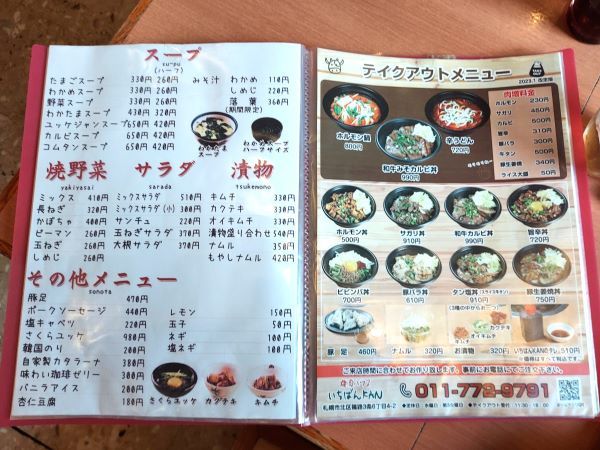 スープ
su-pu
(ハーフ)
たまごスープ 330円 260円
わかめスープ 330円 260円
野菜スープ 330円 260円
わかたまスープ 430円 320円
ユッケジャンスープ 650円 420円
カルビスープ 650円 420円
コムタンスープ 650円 420円
みそ汁 わかめ 110円
しめじ 220円
落葉 360円
(期間限定)
わかたま
スープ
わかめスープ
ハーフサイズ
焼野菜
yakiyasai
ミックス 410円
長ねぎ 320円
かぼちゃ 320円
ピーマン 260円
玉ねぎ 260円
しめじ 260円
サラダ
sarada
ミックスサラダ 510円
ミックスサラダ (小) 300円
サンチュ 320円
玉ねぎサラダ 370円
大根サラダ 370円
漬物
tsukemono
キムチ 330円
カクテキ 330円
オイキムチ 330円
漬物盛り合わせ 540円
ナムル 350円
もやしナムル 420円
その他メニュー
sonota
豚足 470円
ポークソーセージ 440円
塩キャベツ 220円
さくらユッケ 980円
韓国のり 200円
自家製カタラーナ 380円
味わい珈琲ゼリー 380円
バニラアイス 200円
杏仁豆腐 180円
レモン 150円
玉子 50円
ネギ 100円
塩ネギ 100円
さくらユッケ カクテキ キムチ
テイクアウトメニュー
2023.1 改定版
ホルモン鍋
800円
辛うどん
720円
和牛みそカルビ丼
990円
肉増料金
ホルモン 230円
サガリ 450円
カルビ 500円
旨辛 310円
豚バラ 300円
牛タン 500円
豚生姜焼 340円
ライス大盛 50円
ホルモン丼
500円
サガリ丼
910円
和牛カルビ丼
990円
旨辛丼
720円
ビビンバ丼
700円
豚バラ丼
610円
タン塩丼(スライス牛タン)
910円
豚生姜焼丼
750円
(3種の中からお一つ)
カクテキ
オイキムチ
キムチ
豚足 460円
ナムル 320円
お漬物 320円
いちばんKANのタレ 510円
※価格はすべて税込です。
ご来店時間に合わせてお作り致します。事前にお電話にてご注文ください。
いちばんKAN
011-772-9791
札幌市北区篠路3条6丁目4-2